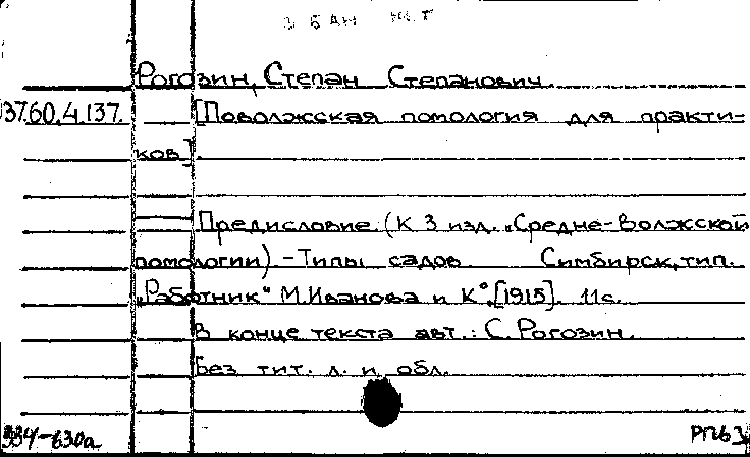 БАН
Рогозин, Степан Степанович
37.60.4.137. [Поволжская помология для практи-
ков].
Предисловие. (К 3 изд. „Средне-Волжской
помологии) - Типы садов Симбирск, тип.
„Работник" М. Иванова и К°. [1915]. 11 с.
В конце текста авт.: С. Рогозин.
Без тит. л. и обл.
334-630а